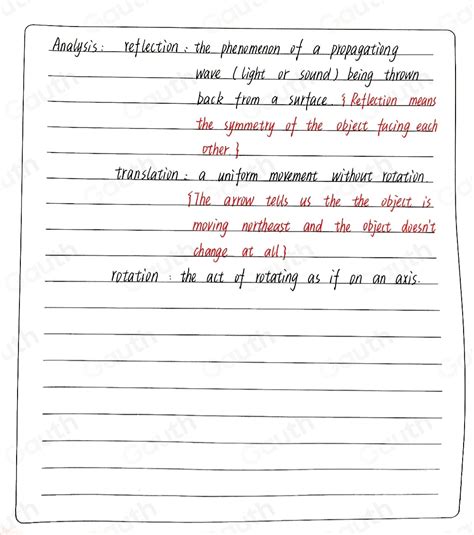 Analysis: reflection: the phenomenon of a propagationg
wave (light or sound) being thrown
back from a surface. {Reflection means
the symmetry of the object facing each
other}
translation: a uniform movement without rotation
{The arrow tells us the the object is
moving northeast and the object doesn't
change at all}
rotation: the act of rotating as if on an axis.